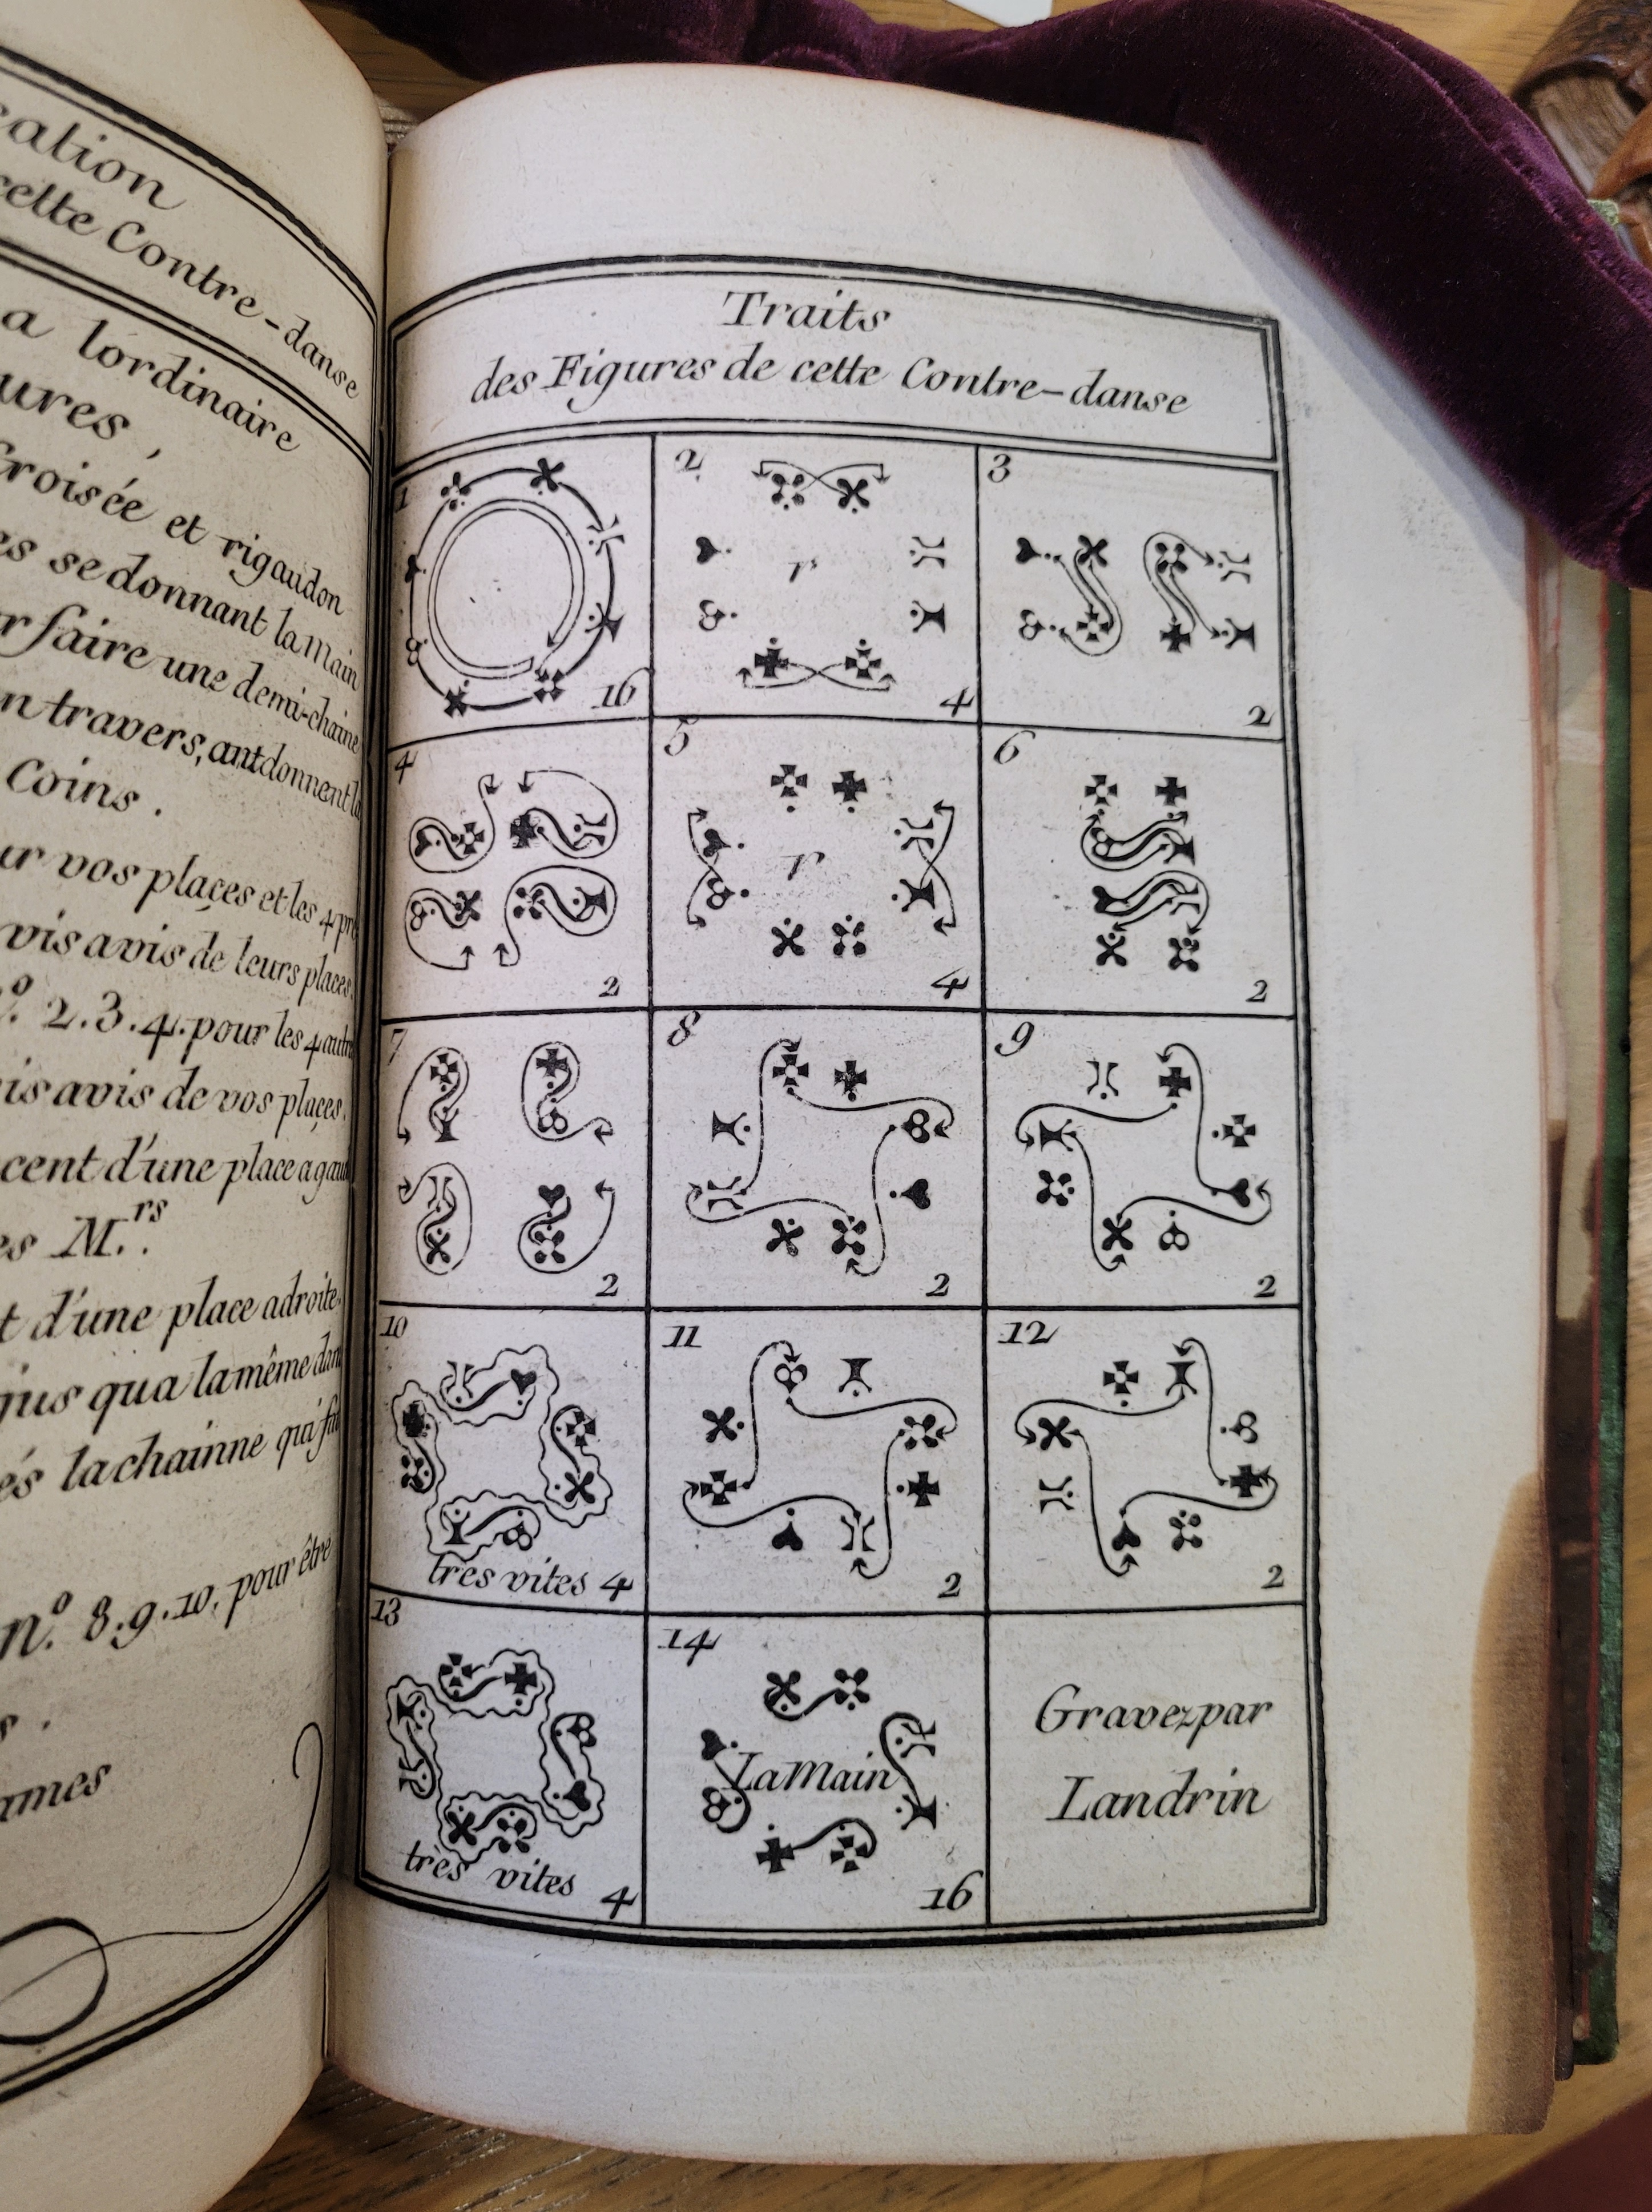 cation
cette Contre-danse
a lordinaire
ures,
croisée et rigaudon
es se donnant la main
r faire une demi-chaine
n travers, ant donnent la
coins.
ur vos places et les 4 pre
vis avis de leurs places.
º. 2.3.4. pour les 4 autre
is avis de vos places.
cent d'une place a gau
es M.rs
t d'une place adroite
jus qua la même dan
és la chainne qui fut
nº. 8.9.10. pour être
s.
ames
Traits
des Figures de cette Contre-danse
1
16
2
r
4
3
2
4
2
5
r
4
6
2
7
2
8
2
9
2
10
tres vites 4
11
2
12
2
13
très vites 4
14
La Main
16
Gravez par
Landrin